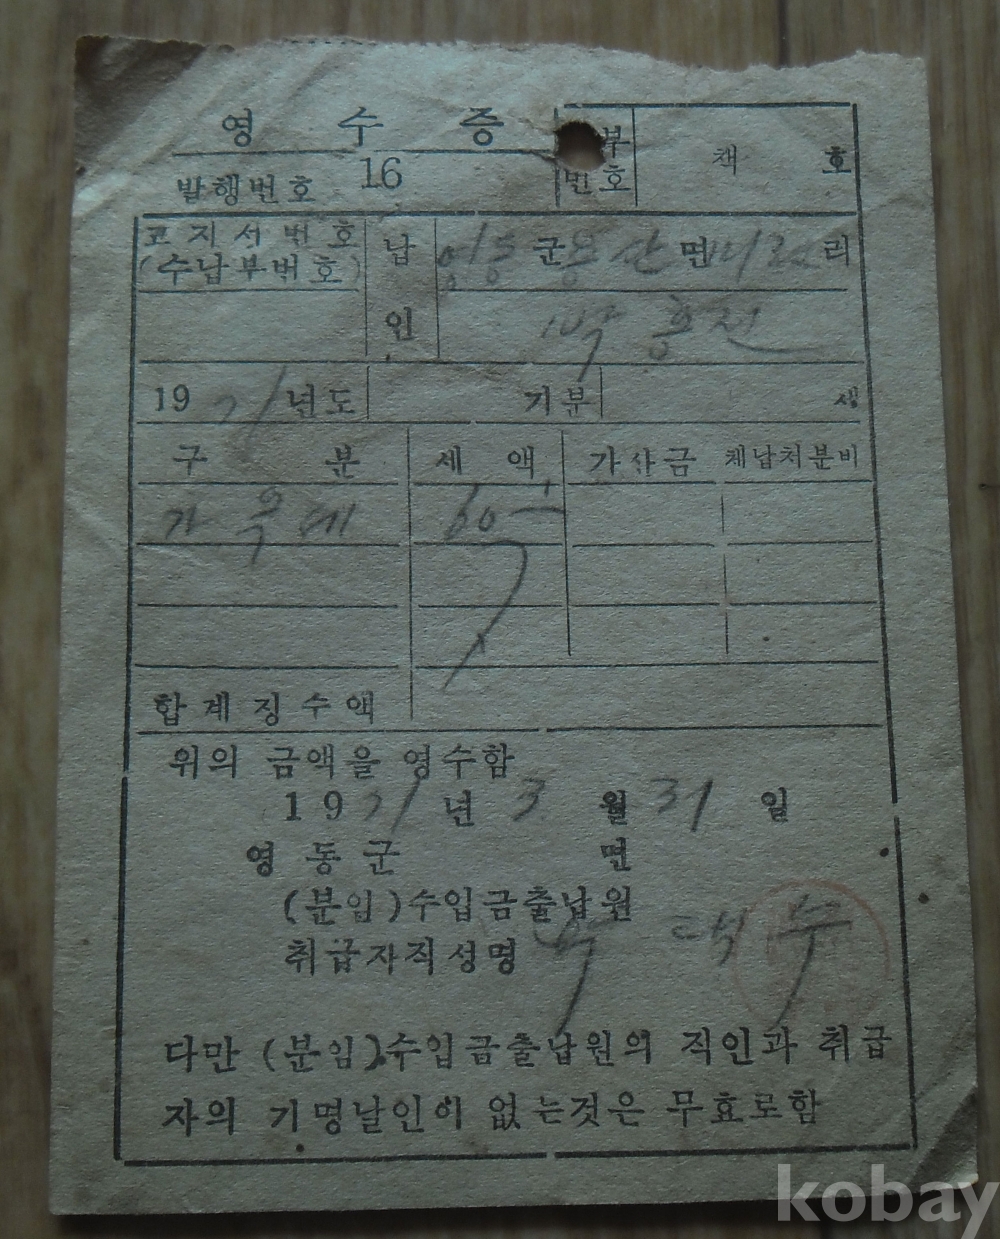 영 수 증
부
번호
책 호
발행번호 16
고지서번호
(수납부번호)
납
영동 군 용산 면 리
인
박흥진
19 71 년도 기분 생
구 분 세 액 가산금 체납처분비
가옥세 60
합계징수액
위의 금액을 영수함
1971 년 3 월 31 일
영동군 면
(분임)수입금출납원
취급자직성명
다만 (분임)수입금출납원의 직인과 취급
자의 기명날인이 없는것은 무효로함
kobay